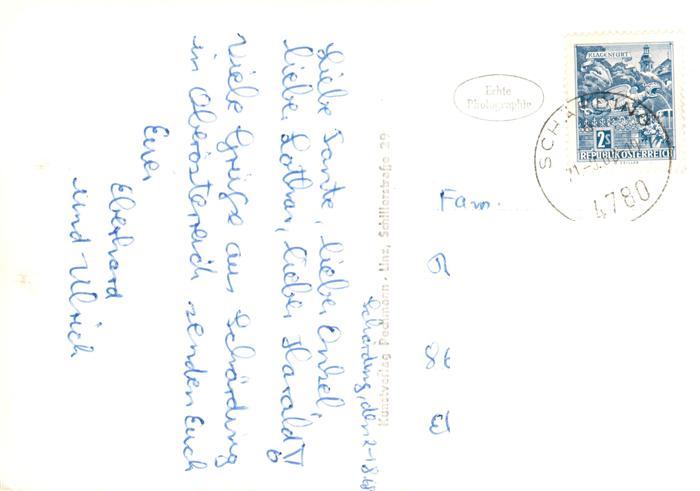 Schärding, den 2.
Liebe Tante, lieber Onkel,
lieber Lothar, lieber Harald!
Viele Grüße aus Schärding
in Oberösterreich senden Euch
Euer
Eberhard
und Ulrich
Kunstverlag Pechmann - Linz, Schillerstraße
Echte
Photographie
KLAGENFURT
2S
REPUBLIK ÖSTERREICH
SCHÄRDING
4780
Fam.